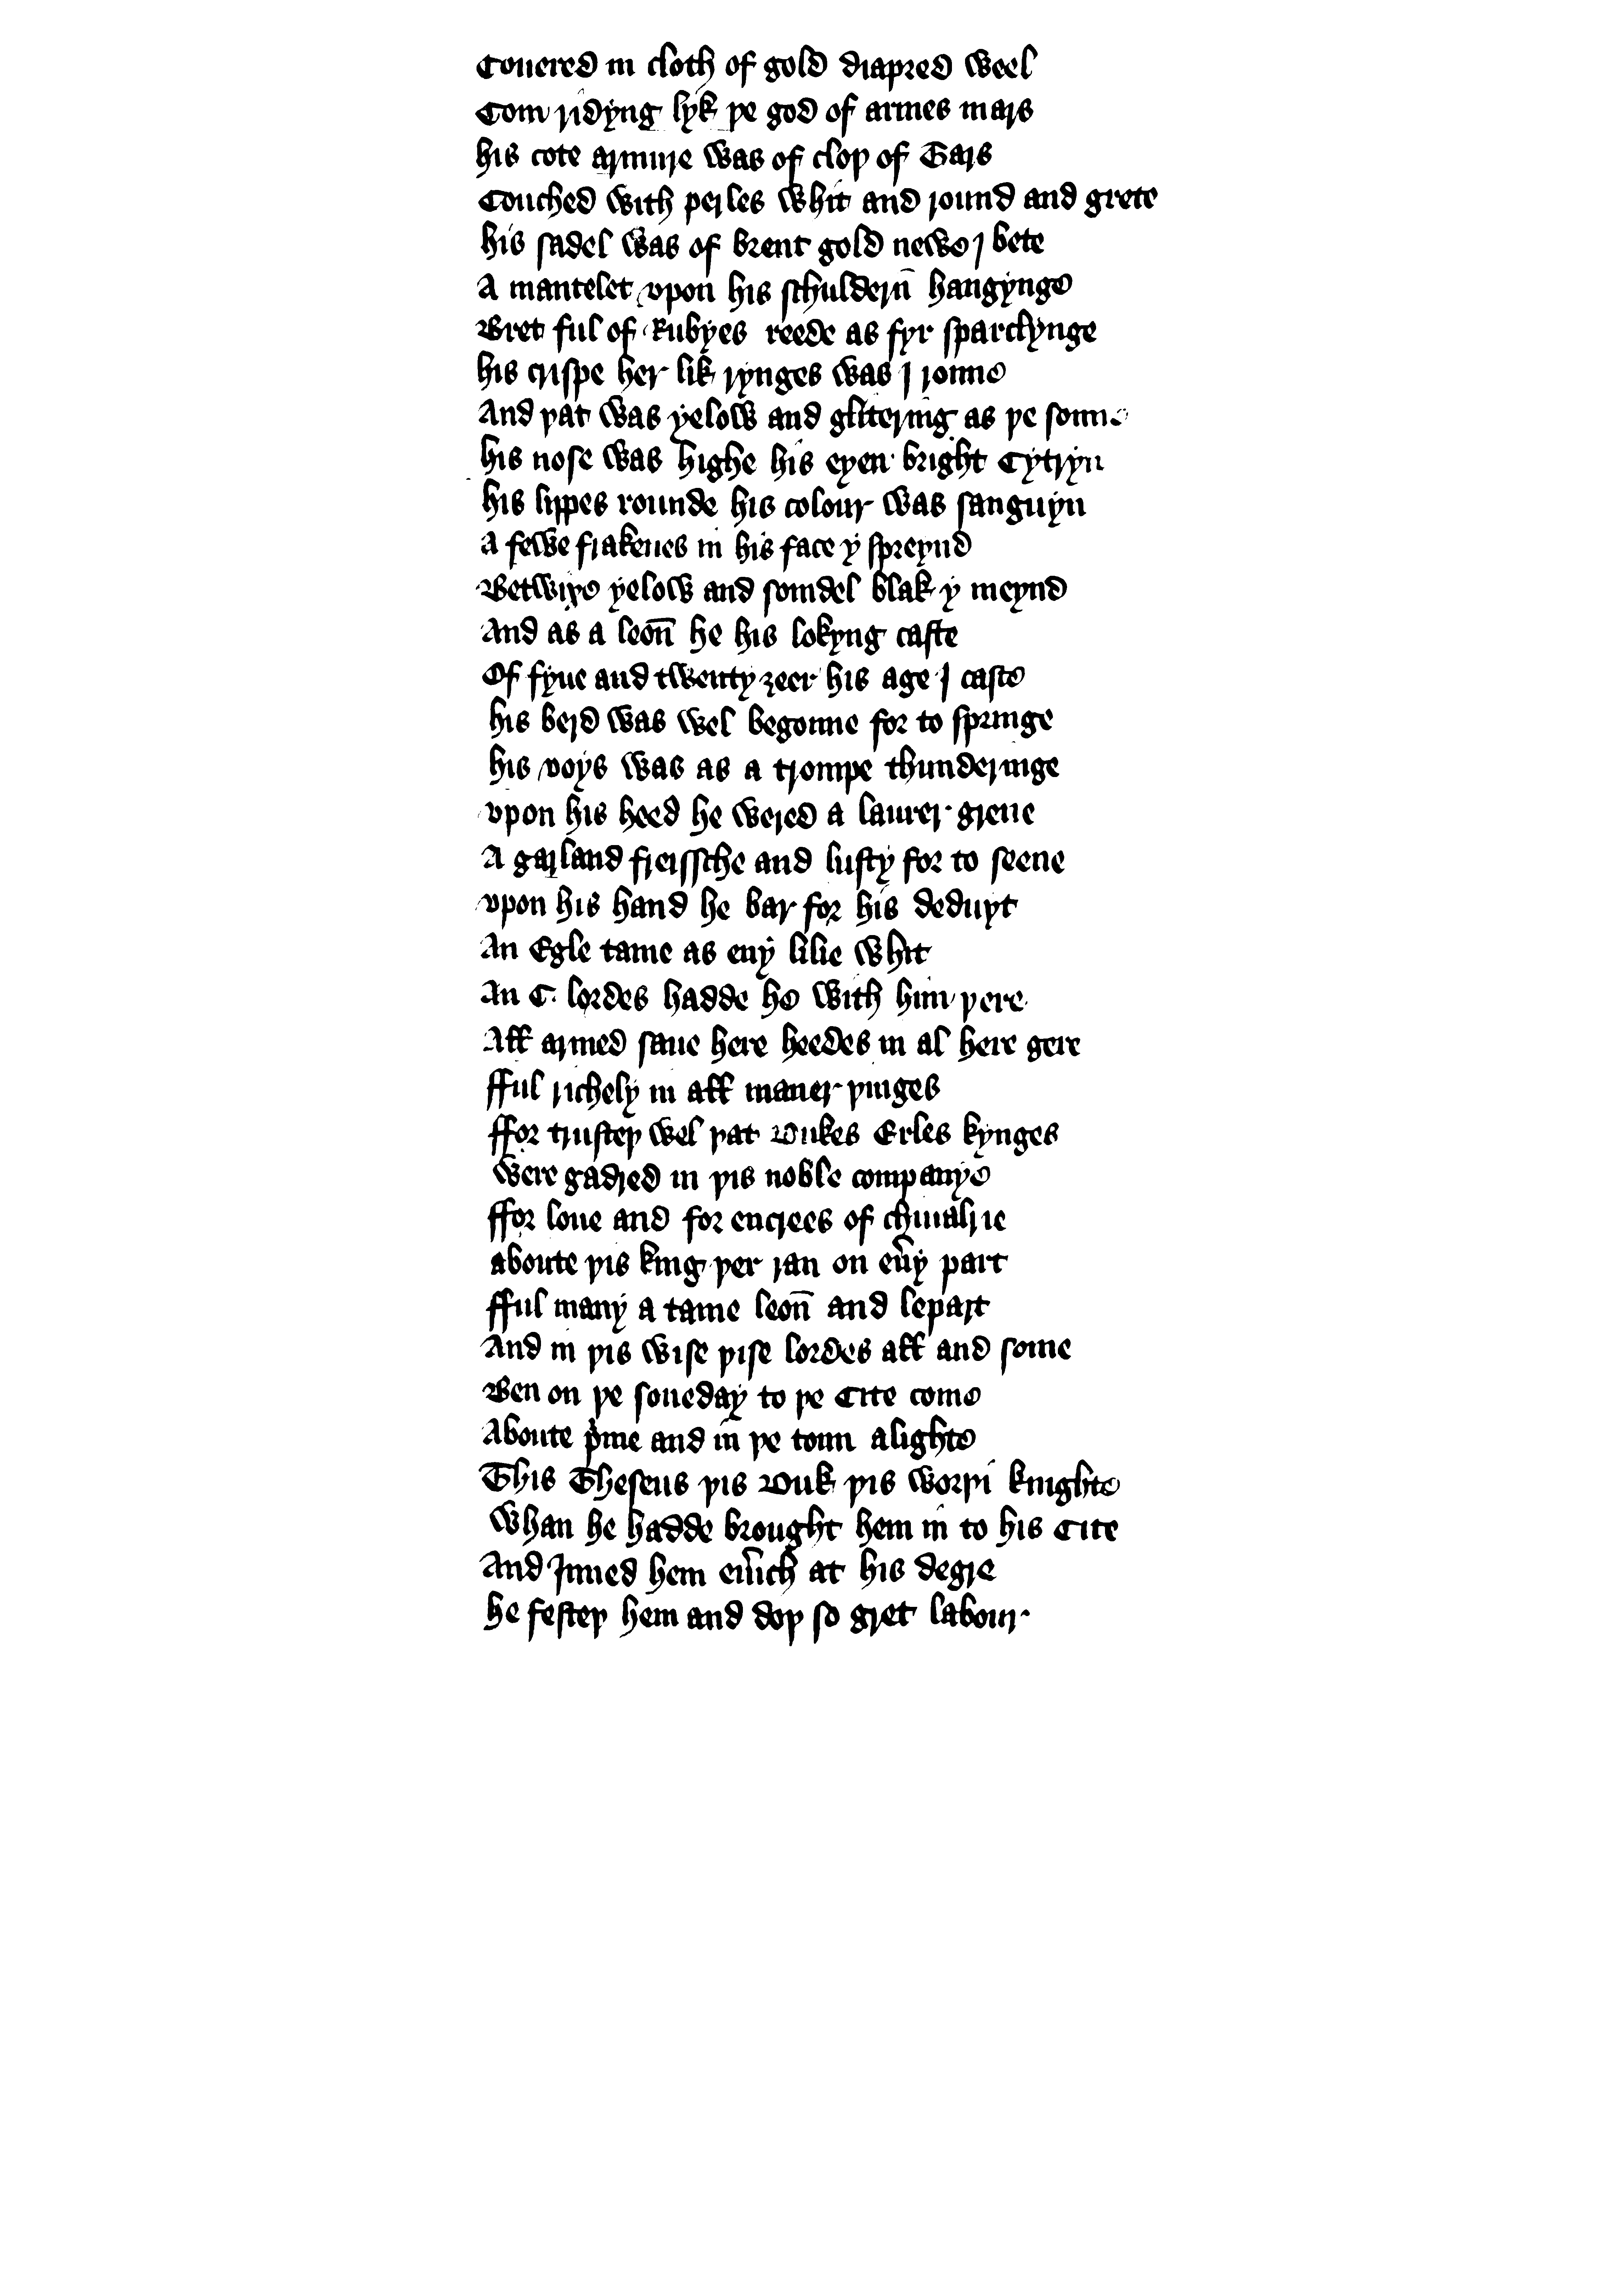 Couered in cloth of gold diapred weel
Com ridyng lyk þe god of armes mars
his cote armure was of cloþ of Tars
Couched with perles whit and round and grete
his sadel was of brent gold newe j bete
A mantelet vpon his schuldern̄ hangynge
Bret ful of Rubyes reede as fyr sparclynge
his crispe her lik rynges was j ronne
And þat was yelow and glitering as þe sonne
his nose was highe his eyen bright Cytryn
his lippes rounde his colour was sanguyn
A fewe frakenes in his face y spreynd
Betwixe yelow and somdel blak y meynd
And as a leon̄ he his lokyng caste
Of fyue and twenty ȝeer his age j caste
his berd was wel begonne for to springe
his voys was as a trompe thunderinge
vpon his heed he wered a laurer grene
A garland freissche and lusty for to seene
vpon his hand he bar for his deduyt
An Egle tame as eny lilie whit
An C. lordes hadde he with him þere
Aƚƚ armed saue here heedes in al here gere
fful richely in aƚƚ maner þinges
ffor trusteþ wel þat Dukes Erles kynges
were gadred in þis noble companye
ffor loue and for encrees of chiualrie
aboute þis king þer ran on eũy part
fful many a tame leon̄ and lepart
And in þis wise þise lordes aƚƚ and some
Ben on þe soneday to þe Cite come
Aboute pͥme and in þe toun alighte
This Theseus þis Duk þis worþi knighte
Whan he hadde brought hem in to his Cite
And Inned hem eũich at his degre
he festeþ hem and doþ so gret labour